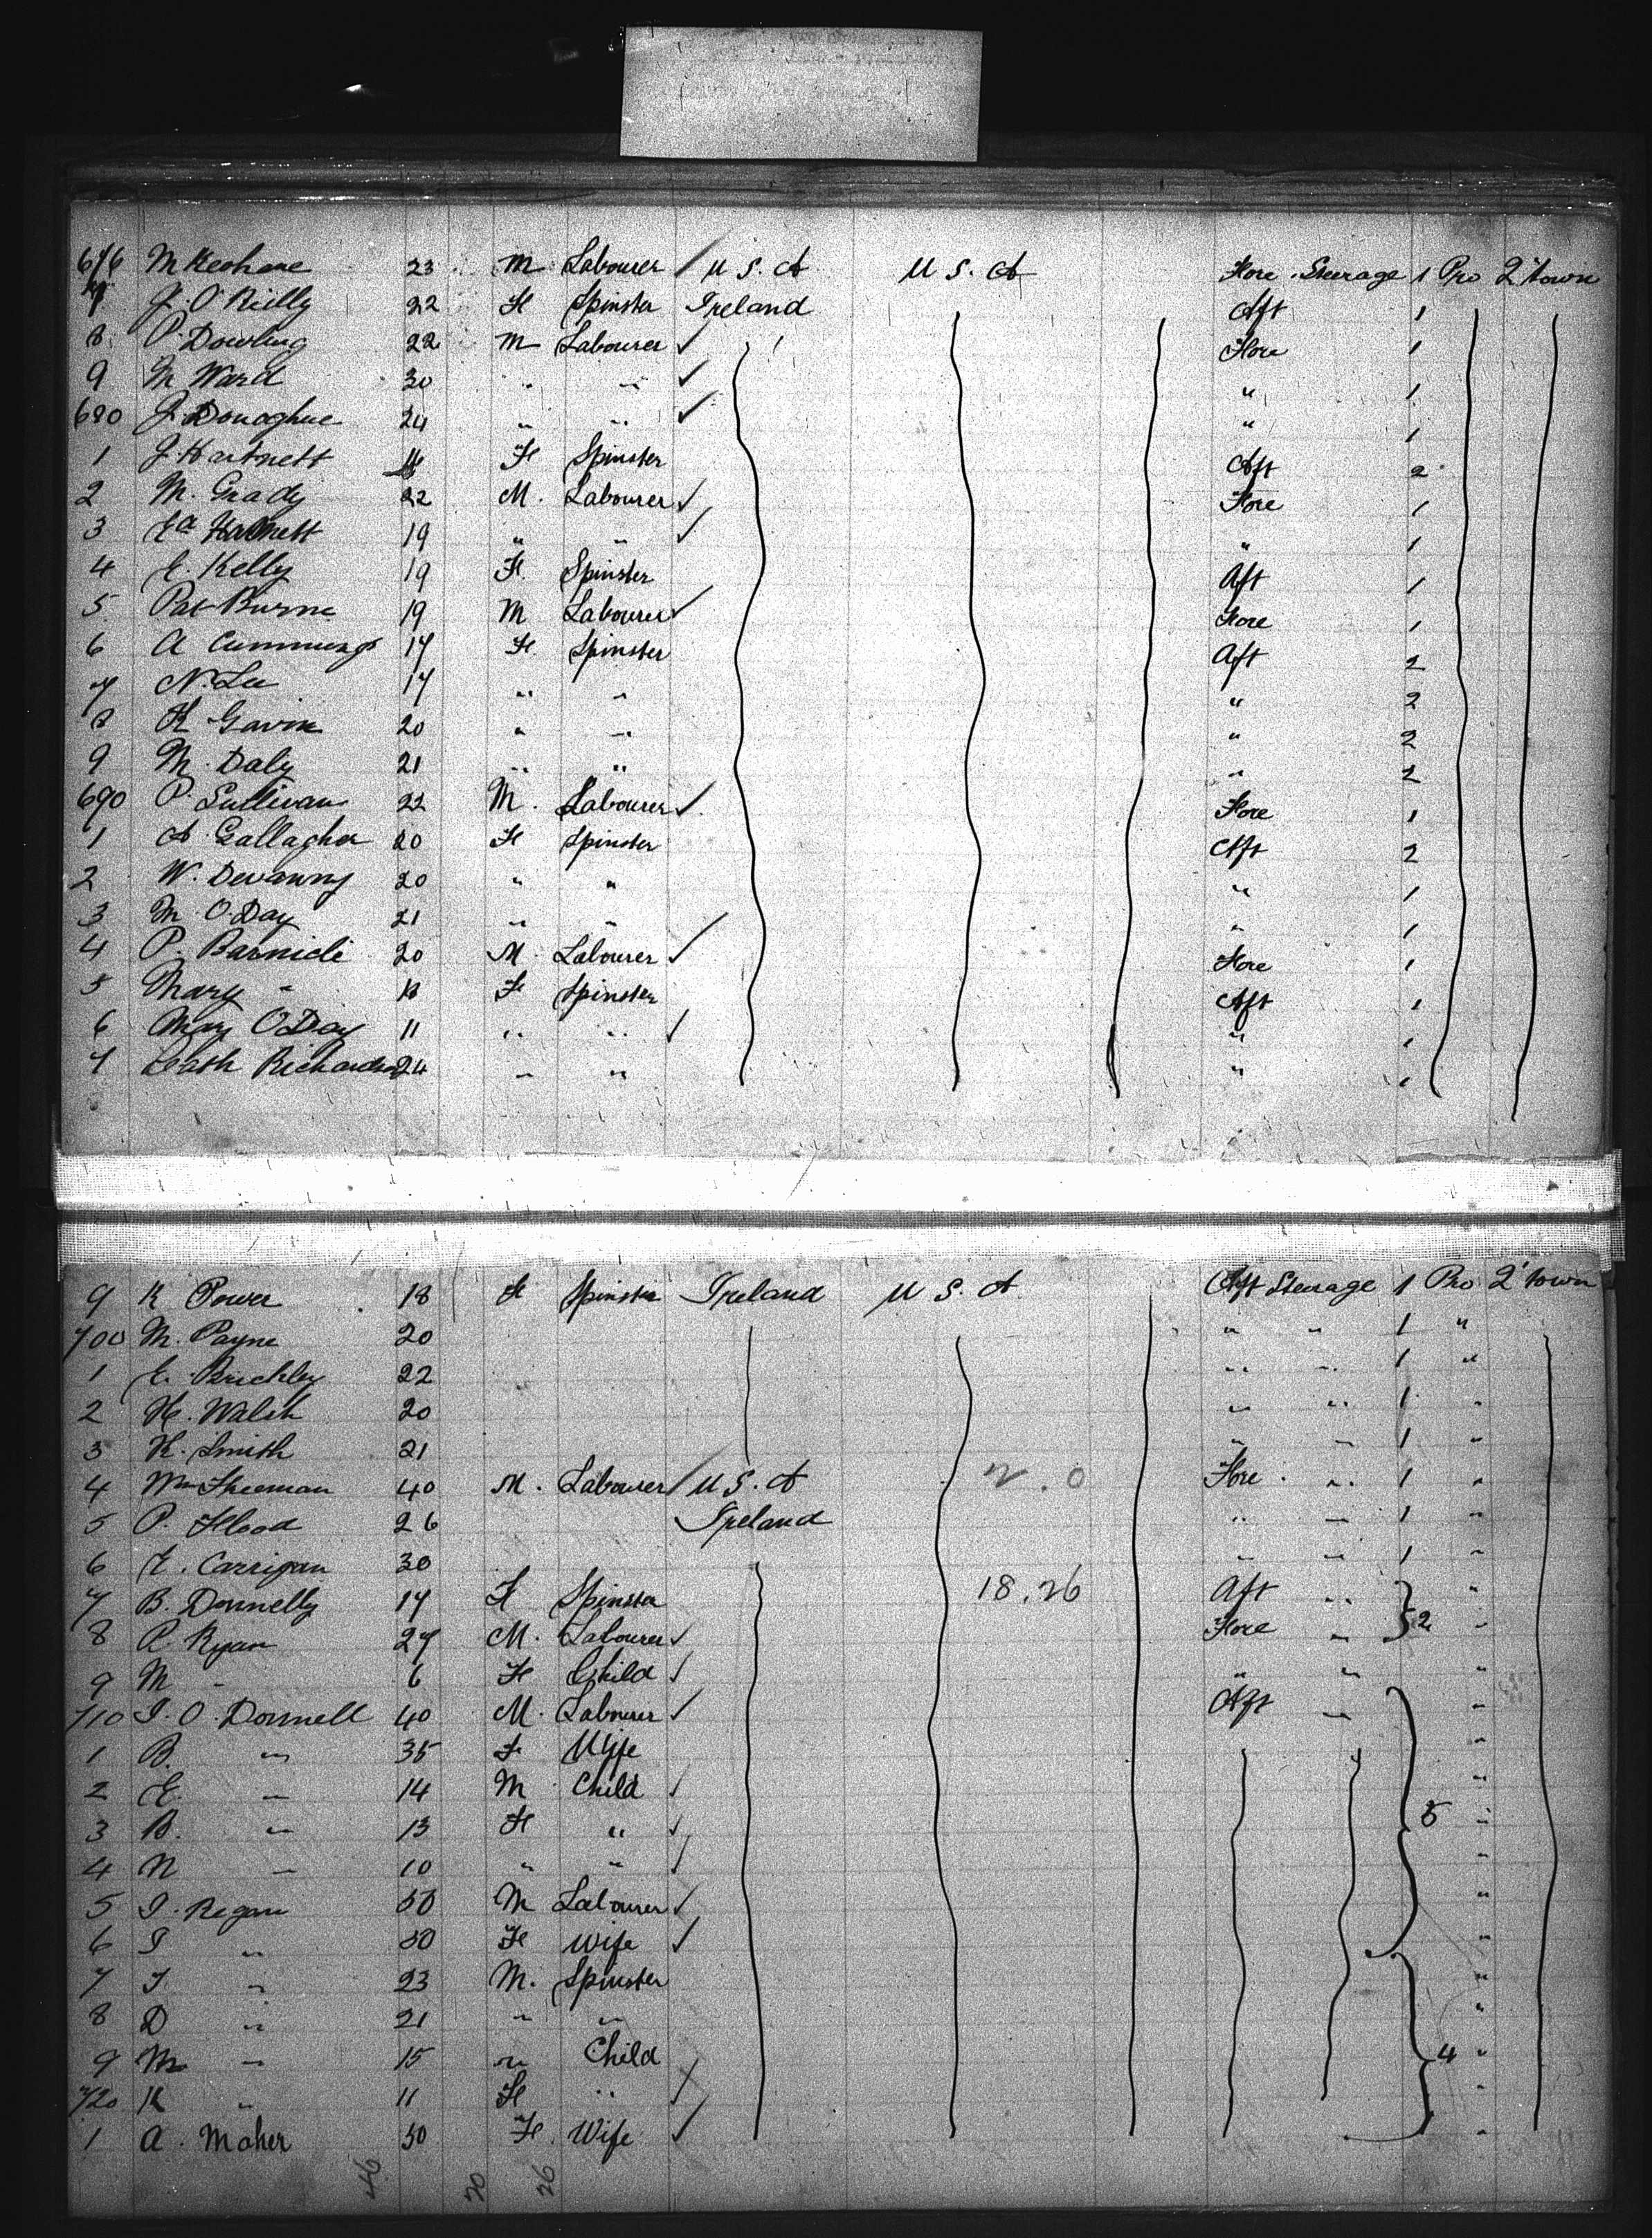 676 M Keohane 23 M Labourer ✓ U S. A U S. A Fore Steerage 1 Pro Q'town
7 J. O'Reilly 22 F Spinster Ireland Aft 1
8 P. Dowling 22 M Labourer ✓ Fore 1
9 M Ward 30 " " ✓ " 1
680 J. Donaghue 24 " " ✓ " 1
1 J. Hartnett F Spinster Aft 2
2 M. Grady 22 M. Labourer ✓ Fore 1
3 Hartnett 19 " " ✓ " 1
4 E. Kelly 19 F. Spinster Aft 1
5 Pat Burns 19 M Labourer ✓ Fore 1
6 A Cummings 17 F. Spinster Aft 2
7 N. Lee 17 " " " 2
8 K Gavin 20 " " " 2
9 M. Daly 21 " " " 2
690 P. Sullivan 22 M. Labourer ✓ Fore 1
1 A. Gallagher 20 F Spinster Aft 2
2 W. Devanny 20 " " " 1
3 M. O.Day 21 " " " 1
4 P. Barnicle 20 M. Labourer ✓ Fore 1
5 Mary " 18 F Spinster Aft 1
6 Mary O'Day 11 " " ✓ " 1
7 Cath Richardson 24 " " " 1
9 K Power 18 F Spinster Ireland U S. A Aft Steerage 1 Pro Q'town
700 M. Payne 20 " " 1 "
1 E. Brickley 22 " " 1 "
2 H. Walsh 20 " " 1 "
3 K. Smith 21 " " 1 "
4 Wm Freeman 40 M. Labourer ✓ U S. A 2.0 Fore " 1 "
5 P. Flood 26 Ireland " " 1 "
6 E. Carrigan 30 " " 1 "
7 B. Donnelly 17 F Spinster 18.26 Aft " "
8 P. Ryan 27 M. Labourer ✓ Fore " 2 "
9 M " 6 F Child ✓ " " "
710 J. O. Donnell 40 M. Labourer ✓ Aft " "
1 B. " 35 F Wife "
2 E. " 14 M Child ✓ "
3 B. " 13 F " ✓ 5 "
4 N " 10 " " ✓ "
5 J. Regan 50 M Labourer ✓ "
6 J " 50 F Wife ✓ "
7 J " 23 M. Spinster "
8 D " 21 " " "
9 M " 15 " Child 4 "
720 K " 11 F " ✓ "
1 A. Maher 50 F. Wife ✓ "
46 20 26